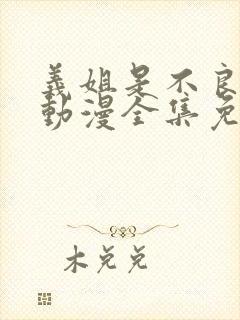 義姐是不良
動漫全集免
木兑兑